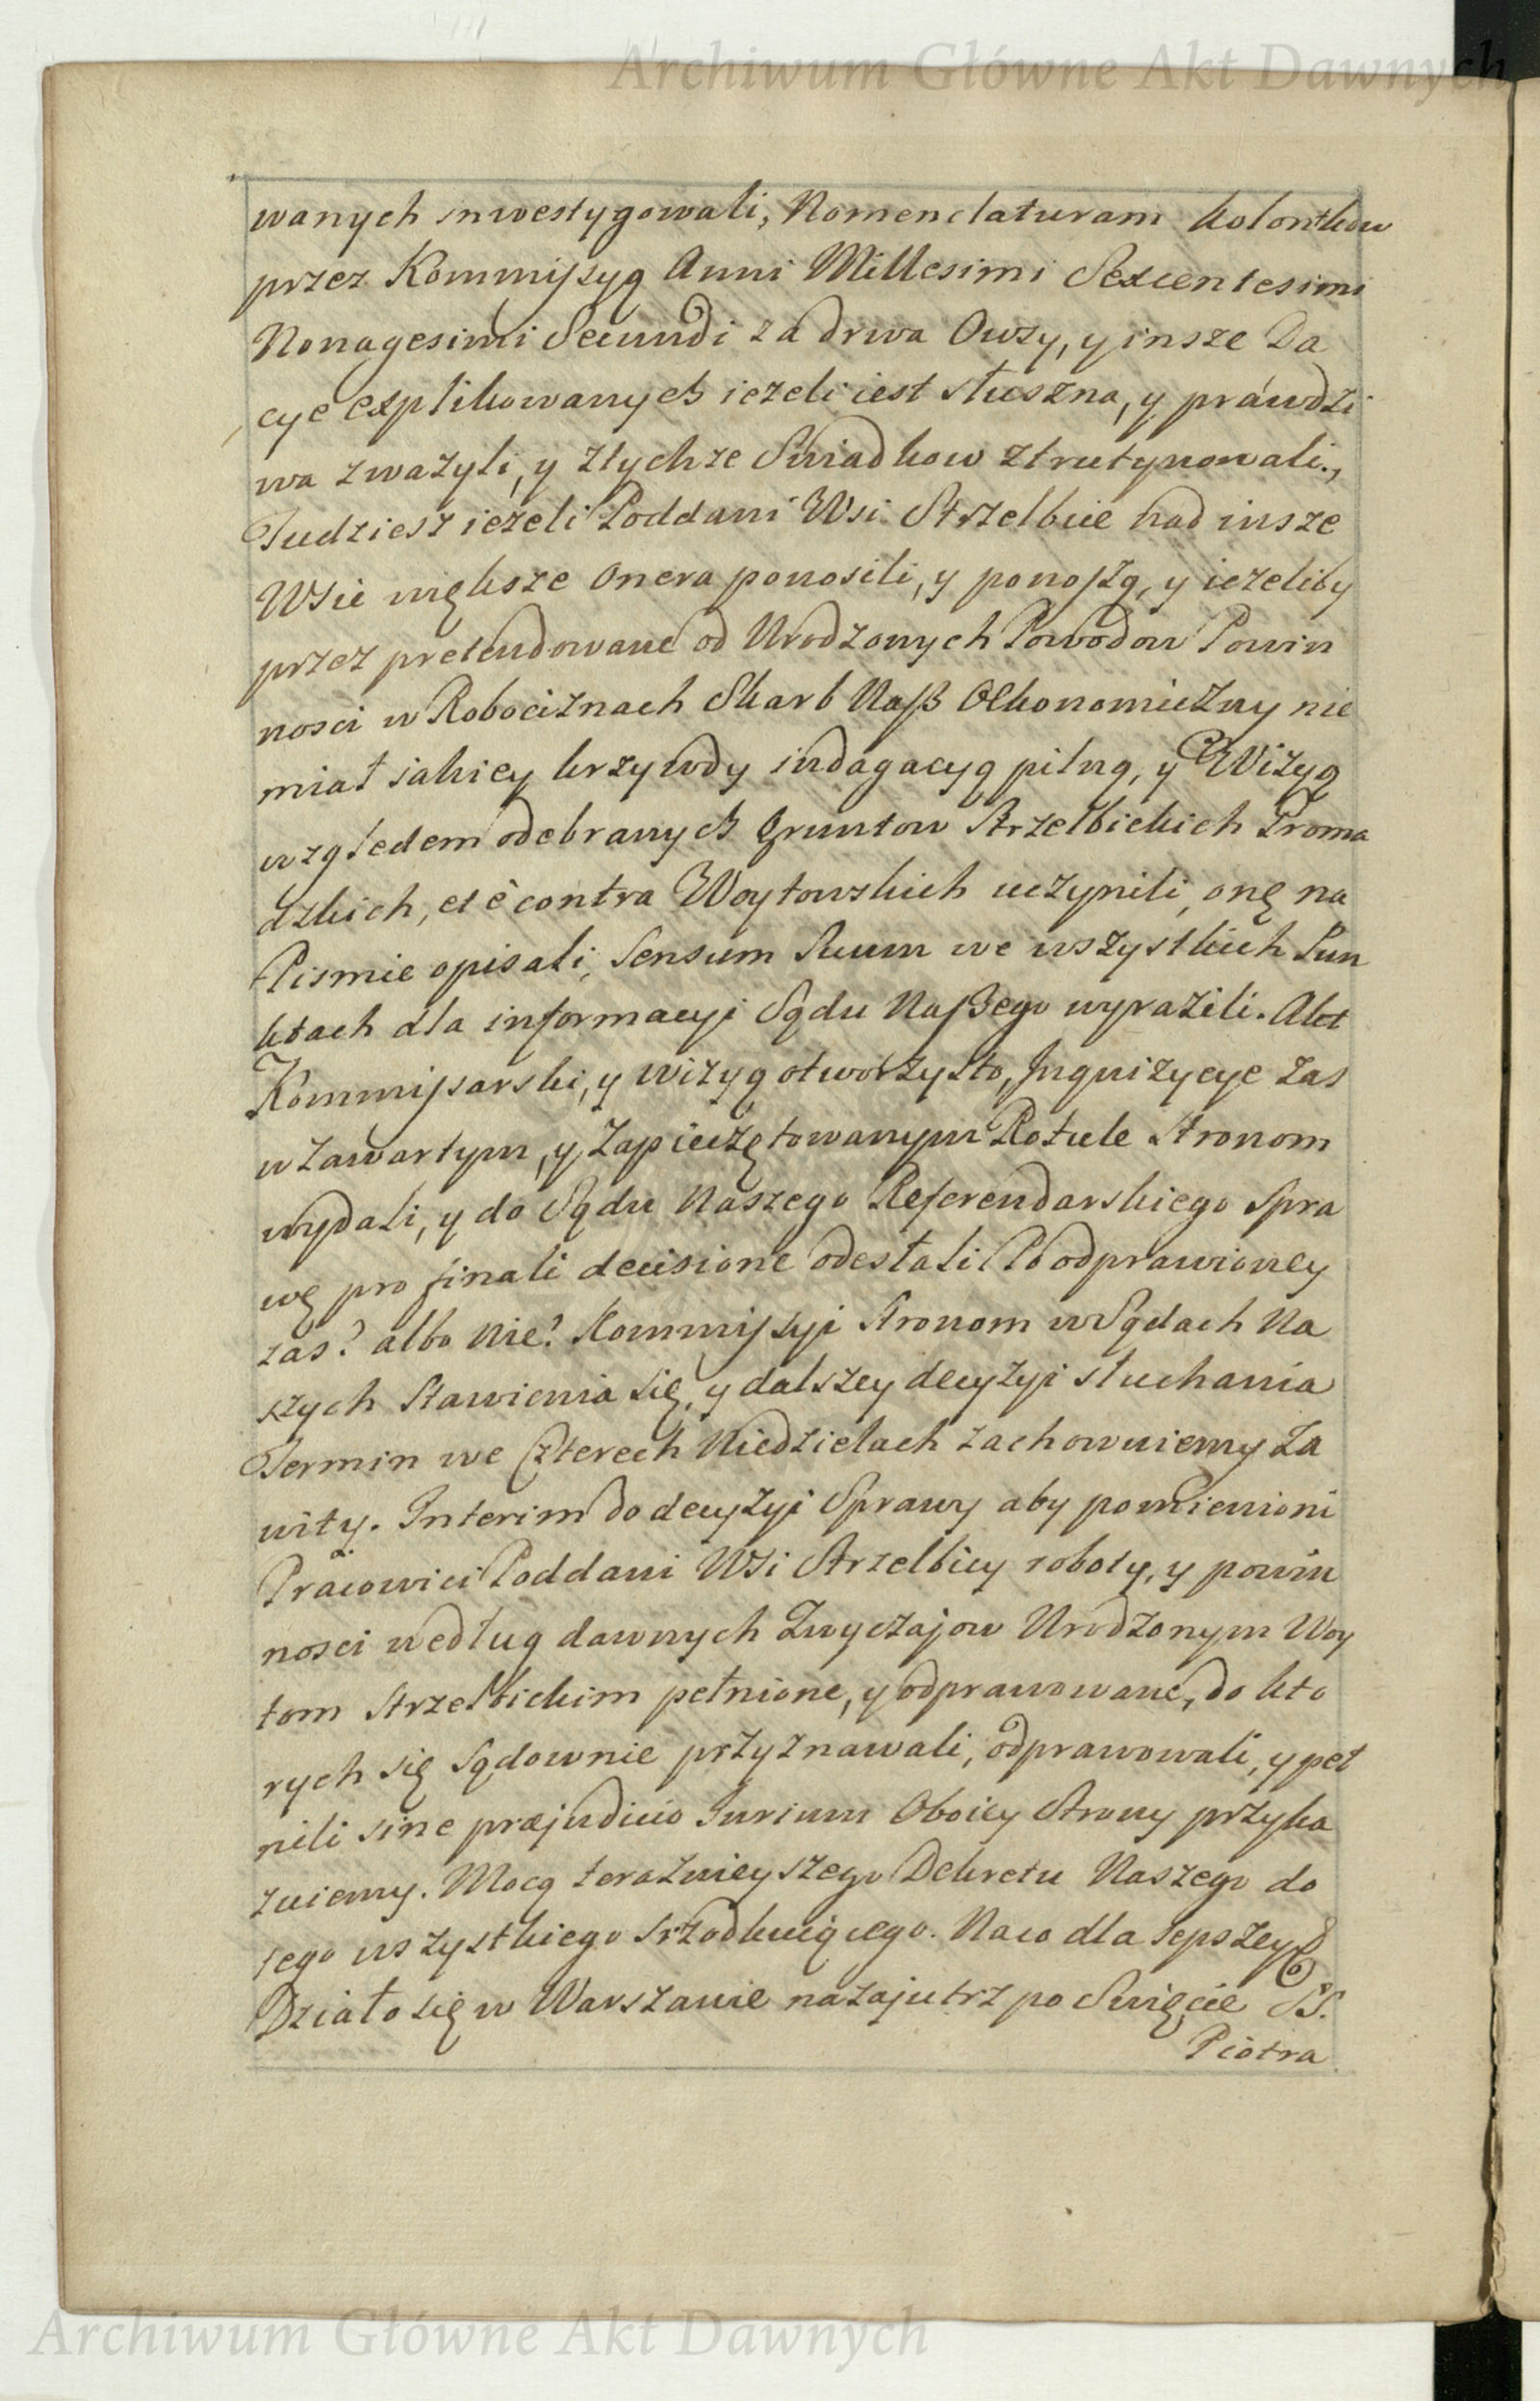 Archiwum Główne Akt Dawnych
wanych inwestygowali, Nomenclaturam kolontkow
przez Kommissyą Anni Millesimi Sexcentesimi
Nonagesimi Secundi za drwa Owsy, y insze Da
cye explikowanych ieżeli iest słuszna, y prawdzi
wa zważyli, y ztychże Swiadkow ztrutynowali.,
Tudziesz ieżeli Poddani Wsi Strzelbice nad insze
Wsie większe Onera ponosili, y ponoszą, y ieżeliby
przez pretendowane od Urodzonych Powodow Powin
nosci w Robociznach Skarb Naß Oekonomiczny nie
miał iakiey krzywdy indagacyą pilną, y Wizyą
względem odebranych gruntow Strzelbickich Groma
dzkich, et è contra Woytowskich uczynili, onę na
Pismie opisali, Sensum Suum we wszystkich Pun
ktach dla informacyi Sądu Naßego wyrazili. Akt
Kommissarski, y wizyą otworzysto, Inquizycye zas
w zawartym, y Zapieczętowanym Rotule Stronom
wydali, y do Sądu Naszego Referendarskiego Spra
wę pro finali decisione odesłali Po odprawioney
zas? albo nie? Kommissyi Stronom w Sądach Na
szych Stawienia się, y dalszey decyzyi słuchania
Termin we Czterech Niedzielach zachowuiemy Za
wity. Interim do decyzyi Sprawy aby pomienioni
Pracowici Poddani Wsi Strzelbicy roboty, y powin
nosci według dawnych Zwyczajow Urodzonym Woy
tom Strzelbickim pełnione, y odprawowane, do kto
rych się Sądownie przyznawali, odprawowali, y peł
nili sine præjudicio Jurium Oboiey Strony przyka
zuiemy. Mocą teraznieyszego Dekretu Naszego do
tego wszystkiego srzodkuiącego. Na co dla lepszey
Działo się w Warszawie nazajutrz po Swięcie SS.
Piotra
Archiwum Główne Akt Dawnych